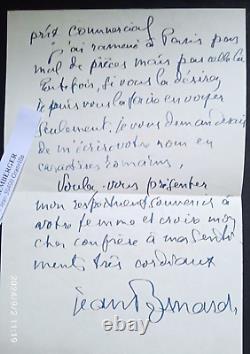 prêt commercial
j'ai ramené à Paris pas
mal de pièces mais pas celle-là
Toutefois, si vous la désirez
je puis vous la faire envoyer
seulement. Je vous demanderais
de m'écrire votre nom en
caractères romains.
Voulez-vous présenter
mon respectueux souvenir à
votre femme et croire mon
cher confrère à mes senti
ments très cordiaux
Jean Bernard
EMBERGER
2024/9/2 11:19